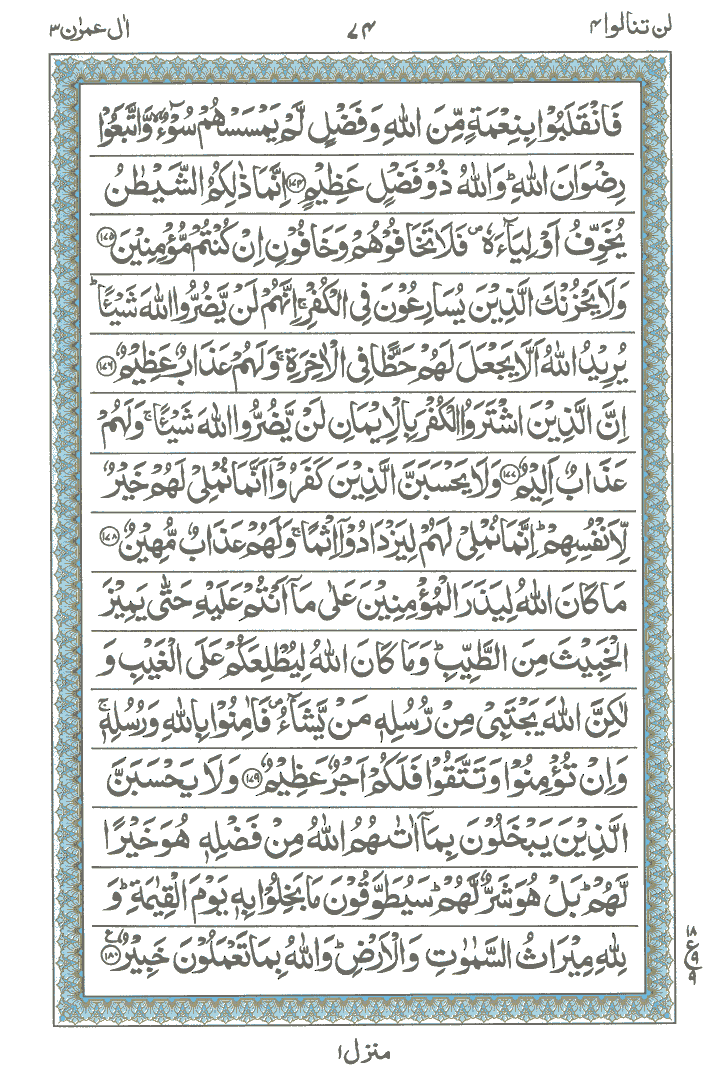 لن تنالوا ۴ ۷۴ اٰل عمرٰن ۳
فَانْقَلَبُوْا بِنِعْمَةٍ مِّنَ اللّٰهِ وَفَضْلٍ لَّمْ یَمْسَسْهُمْ سُوْٓءٌ ۙ وَّاتَّبَعُوْا
رِضْوَانَ اللّٰهِ ؕ وَاللّٰهُ ذُوْ فَضْلٍ عَظِیْمٍ ۝۱۷۴ اِنَّمَا ذٰلِكُمُ الشَّیْطٰنُ
یُخَوِّفُ اَوْلِیَآءَهٗ ۪ فَلَا تَخَافُوْهُمْ وَخَافُوْنِ اِنْ كُنْتُمْ مُّؤْمِنِیْنَ ۝۱۷۵
وَلَا یَحْزُنْكَ الَّذِیْنَ یُسَارِعُوْنَ فِی الْكُفْرِ ۚ اِنَّهُمْ لَنْ یَّضُرُّوا اللّٰهَ شَیْـًٔا ؕ
یُرِیْدُ اللّٰهُ اَلَّا یَجْعَلَ لَهُمْ حَظًّا فِی الْاٰخِرَةِ ۚ وَلَهُمْ عَذَابٌ عَظِیْمٌ ۝۱۷۶
اِنَّ الَّذِیْنَ اشْتَرَوُا الْكُفْرَ بِالْاِیْمَانِ لَنْ یَّضُرُّوا اللّٰهَ شَیْـًٔا ۚ وَلَهُمْ
عَذَابٌ اَلِیْمٌ ۝۱۷۷ وَلَا یَحْسَبَنَّ الَّذِیْنَ كَفَرُوْۤا اَنَّمَا نُمْلِیْ لَهُمْ خَیْرٌ
لِّاَنْفُسِهِمْ ؕ اِنَّمَا نُمْلِیْ لَهُمْ لِیَزْدَادُوْۤا اِثْمًا ۚ وَلَهُمْ عَذَابٌ مُّهِیْنٌ ۝۱۷۸
مَا كَانَ اللّٰهُ لِیَذَرَ الْمُؤْمِنِیْنَ عَلٰی مَاۤ اَنْتُمْ عَلَیْهِ حَتّٰی یَمِیْزَ
الْخَبِیْثَ مِنَ الطَّیِّبِ ؕ وَمَا كَانَ اللّٰهُ لِیُطْلِعَكُمْ عَلَی الْغَیْبِ وَ
لٰكِنَّ اللّٰهَ یَجْتَبِیْ مِنْ رُّسُلِهٖ مَنْ یَّشَآءُ ۪ فَاٰمِنُوْا بِاللّٰهِ وَرُسُلِهٖ ۚ
وَاِنْ تُؤْمِنُوْا وَتَتَّقُوْا فَلَكُمْ اَجْرٌ عَظِیْمٌ ۝۱۷۹ وَلَا یَحْسَبَنَّ
الَّذِیْنَ یَبْخَلُوْنَ بِمَاۤ اٰتٰىهُمُ اللّٰهُ مِنْ فَضْلِهٖ هُوَ خَیْرًا
لَّهُمْ ؕ بَلْ هُوَ شَرٌّ لَّهُمْ ؕ سَیُطَوَّقُوْنَ مَا بَخِلُوْا بِهٖ یَوْمَ الْقِیٰمَةِ ؕ وَ
لِلّٰهِ مِیْرَاثُ السَّمٰوٰتِ وَالْاَرْضِ ؕ وَاللّٰهُ بِمَا تَعْمَلُوْنَ خَبِیْرٌ ۝۱۸۰
۱۸
ع ۹
۹
منزل ۱